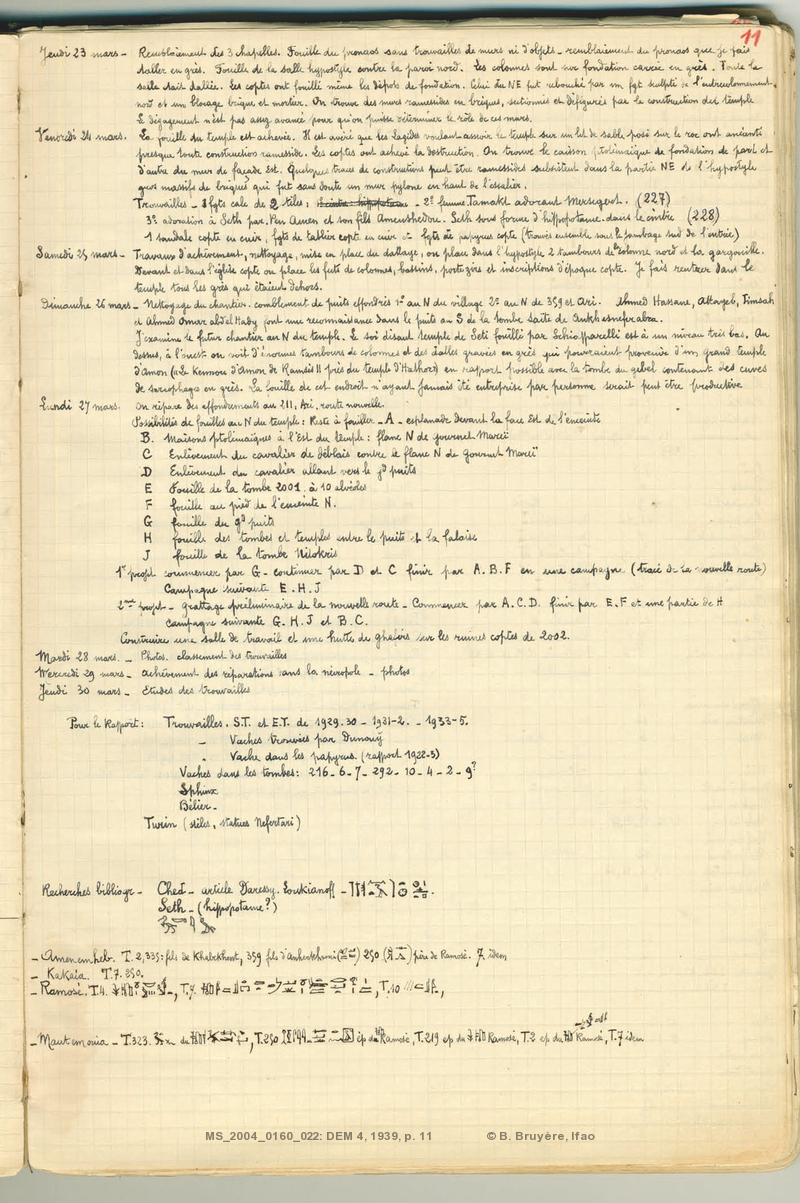 11
Jeudi 23 mars - Remblaiement des 3 chapelles. Fouille du pronaos sans trouvailles de murs ni d'objets - remblaiement du pronaos que je fais
daller en grès. Fouille de la salle hypostyle contre la paroi nord. Les colonnes sont sur fondation carrée en grès. Toute la
salle était dallée. Les coptes ont fouillé même les dépôts de fondation. Celui du NE fut rebouché par un fgt sculpté de l'entrecolonnement
nord et un blocage brique et mortier. On trouve des murs ramessides en briques, sectionnés et défigurés par la construction du temple
Le dégagement n'est pas assez avancé pour qu'on puisse déterminer le rôle de ces murs.
Vendredi 24 mars. La fouille du temple est achevée. Il est avéré que les Lagides voulant asseoir le temple sur un lit de sable posé sur le roc ont anéanti
presque toute construction ramesside. Les coptes ont achevé la destruction. On trouve le caisson ptolémaïque de fondation de part et
d'autre du mur de façade Est. Quelques traces de constructions peut être ramessides subsistent dans la partie NE de l'hypostyle
gros massifs de briques qui fut sans doute un mur pylone en haut de l'escalier.
Trouvailles - 3 fgts calc de 2 stèles: - 2° femme Tamakt adorant Mersegert. (227)
3° adoration à Seth par Pen Amen et son fils Amenshedou. Seth sous forme d'hippopotame dans le cintre (228)
1 sandale copte en cuir, fgts de tablier copte en cuir et fgts de papyrus copte (trouvés ensemble sous le jambage sud de l'entrée)
Samedi 25 mars - Travaux d'achèvement, nettoyage, mise en place du dallage, on place dans l'hypostyle 2 tambours de colonne nord et la gargouille.
Devant et dans l'église copte on place les futs de colonnes, bassins, porte zirs et inscriptions d'époque copte. Je fais rentrer dans le
temple tous les grès qui étaient dehors.
Dimanche 26 mars - Nettoyage du chantier. comblement de puits effondrés 1° au N du village 2° au N de 359 et Ari. Ahmed Hassane, Attayeb, Timsah
et Ahmed Omar abd el Hady font une reconnaissance dans le puits au S de la tombe saïte de Ankhesneferabra.
J'examine le futur chantier au N du temple. Le soi disant temple de Seti fouillé par Schiapparelli est à un niveau très bas. Au
dessus, à l'ouest on voit d'énormes tambours de colonnes et des dalles gravées en grès qui pourraient provenir d'un grand temple
d'Amon (« Le Kennou d'Amon de Ramsès II près du temple d'Hathor ») en rapport possible avec la tombe du gebel contenant des cuves
de sarcophages en grès. La fouille de cet endroit n'ayant jamais été entreprise par personne serait peut être productive
Lundi 27 mars. On répare des effondrements au 211, Ari, route nouvelle.
Possibilités de fouilles au N du temple: Reste à fouiller - A - esplanade devant la face Est de l'enceinte
B. Maisons ptolémaïques à l'Est du temple: flanc N de gournet Mareï
C Enlèvement du cavalier de déblais contre le flanc N de Gournet Mareï
D Enlèvement du cavalier allant vers le gd puits
E Fouille de la tombe 2001. à 10 alvéoles
F fouille au pied de l'enceinte N.
G fouille du gd puits
H fouille des tombes et temples entre le puits et la falaise
J fouille de la tombe Nitokris
1er projet commencer par G - continuer par D et C finir par A.B.F en une campagne (tracé de la nouvelle route)
Campagne suivante E.H.J
2me projet - grattage préliminaire de la nouvelle route - Commencer par A.C.D. finir par E.F et une partie de H
campagne suivante G.H.J et B.C.
Construire une salle de travail et une hutte de ghafirs sur les ruines coptes de 2002.
Mardi 28 mars. - Photos. classement des trouvailles
Mercredi 29 mars - achèvement des réparations dans la nécropole - photos
Jeudi 30 mars - Etudes des trouvailles
Pour le Rapport: Trouvailles. S.T. et E.T. de 1929.30 - 1931-2. - 1933-5.
- Vaches trouvées par Dunouy
" Vache dans les papyrus (rapport 1922-3)
Vaches dans les tombes: 216-6-7-292-10-4-2-9?
Sphinx
Bélier -
Turin (stèles, statues Nefertari)
Recherches bibliogr - Ched - article Daressy. Loukianoff -
Seth - (hippopotame?)
- Amenemheb. T. 2,335: fils de Khabekhent, 359 fils d'Anherkhaoui 250 père de Ramosé. 7 idem
- Kakaia. T.7. 250.
- Ramosé. T.4. , T.7. , T.10
- Maut em ouia - T.323. du , T.250 ép du Ramosé, T.219 ep du Ramosé, T.2 ep du Ramosé, T.7 idem
MS_2004_0160_022: DEM 4, 1939, p. 11 © B. Bruyère, Ifao